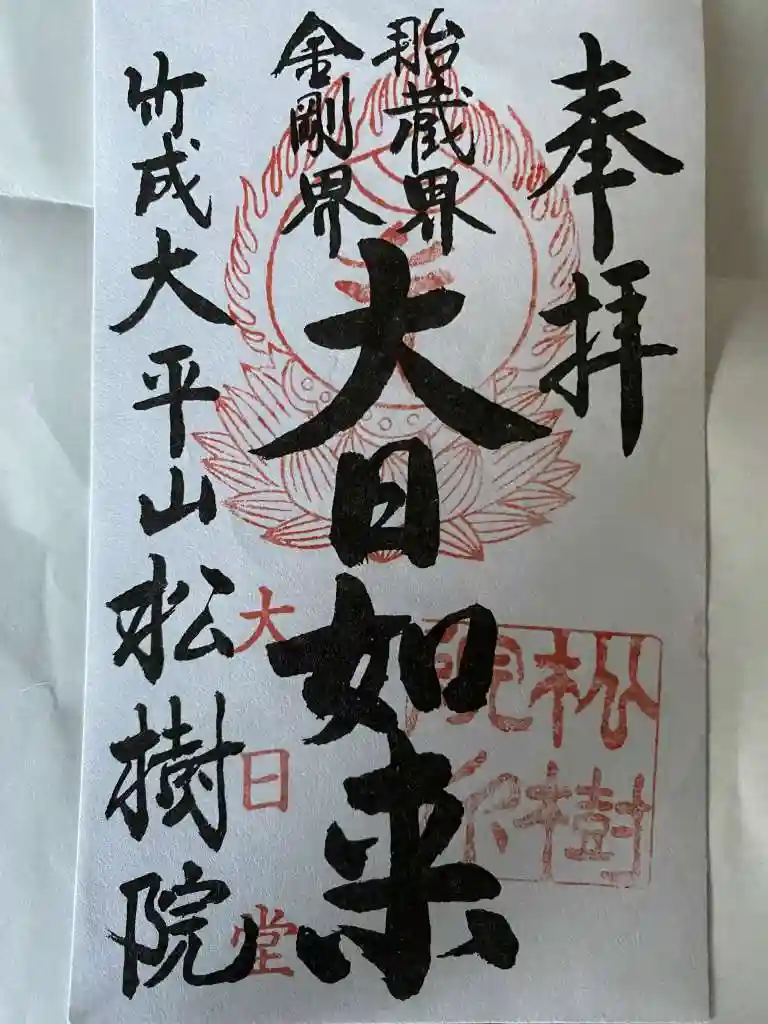 奉拝
胎蔵界
金剛界
大日如来
大日堂
竹成大平山松樹院
松樹
院印